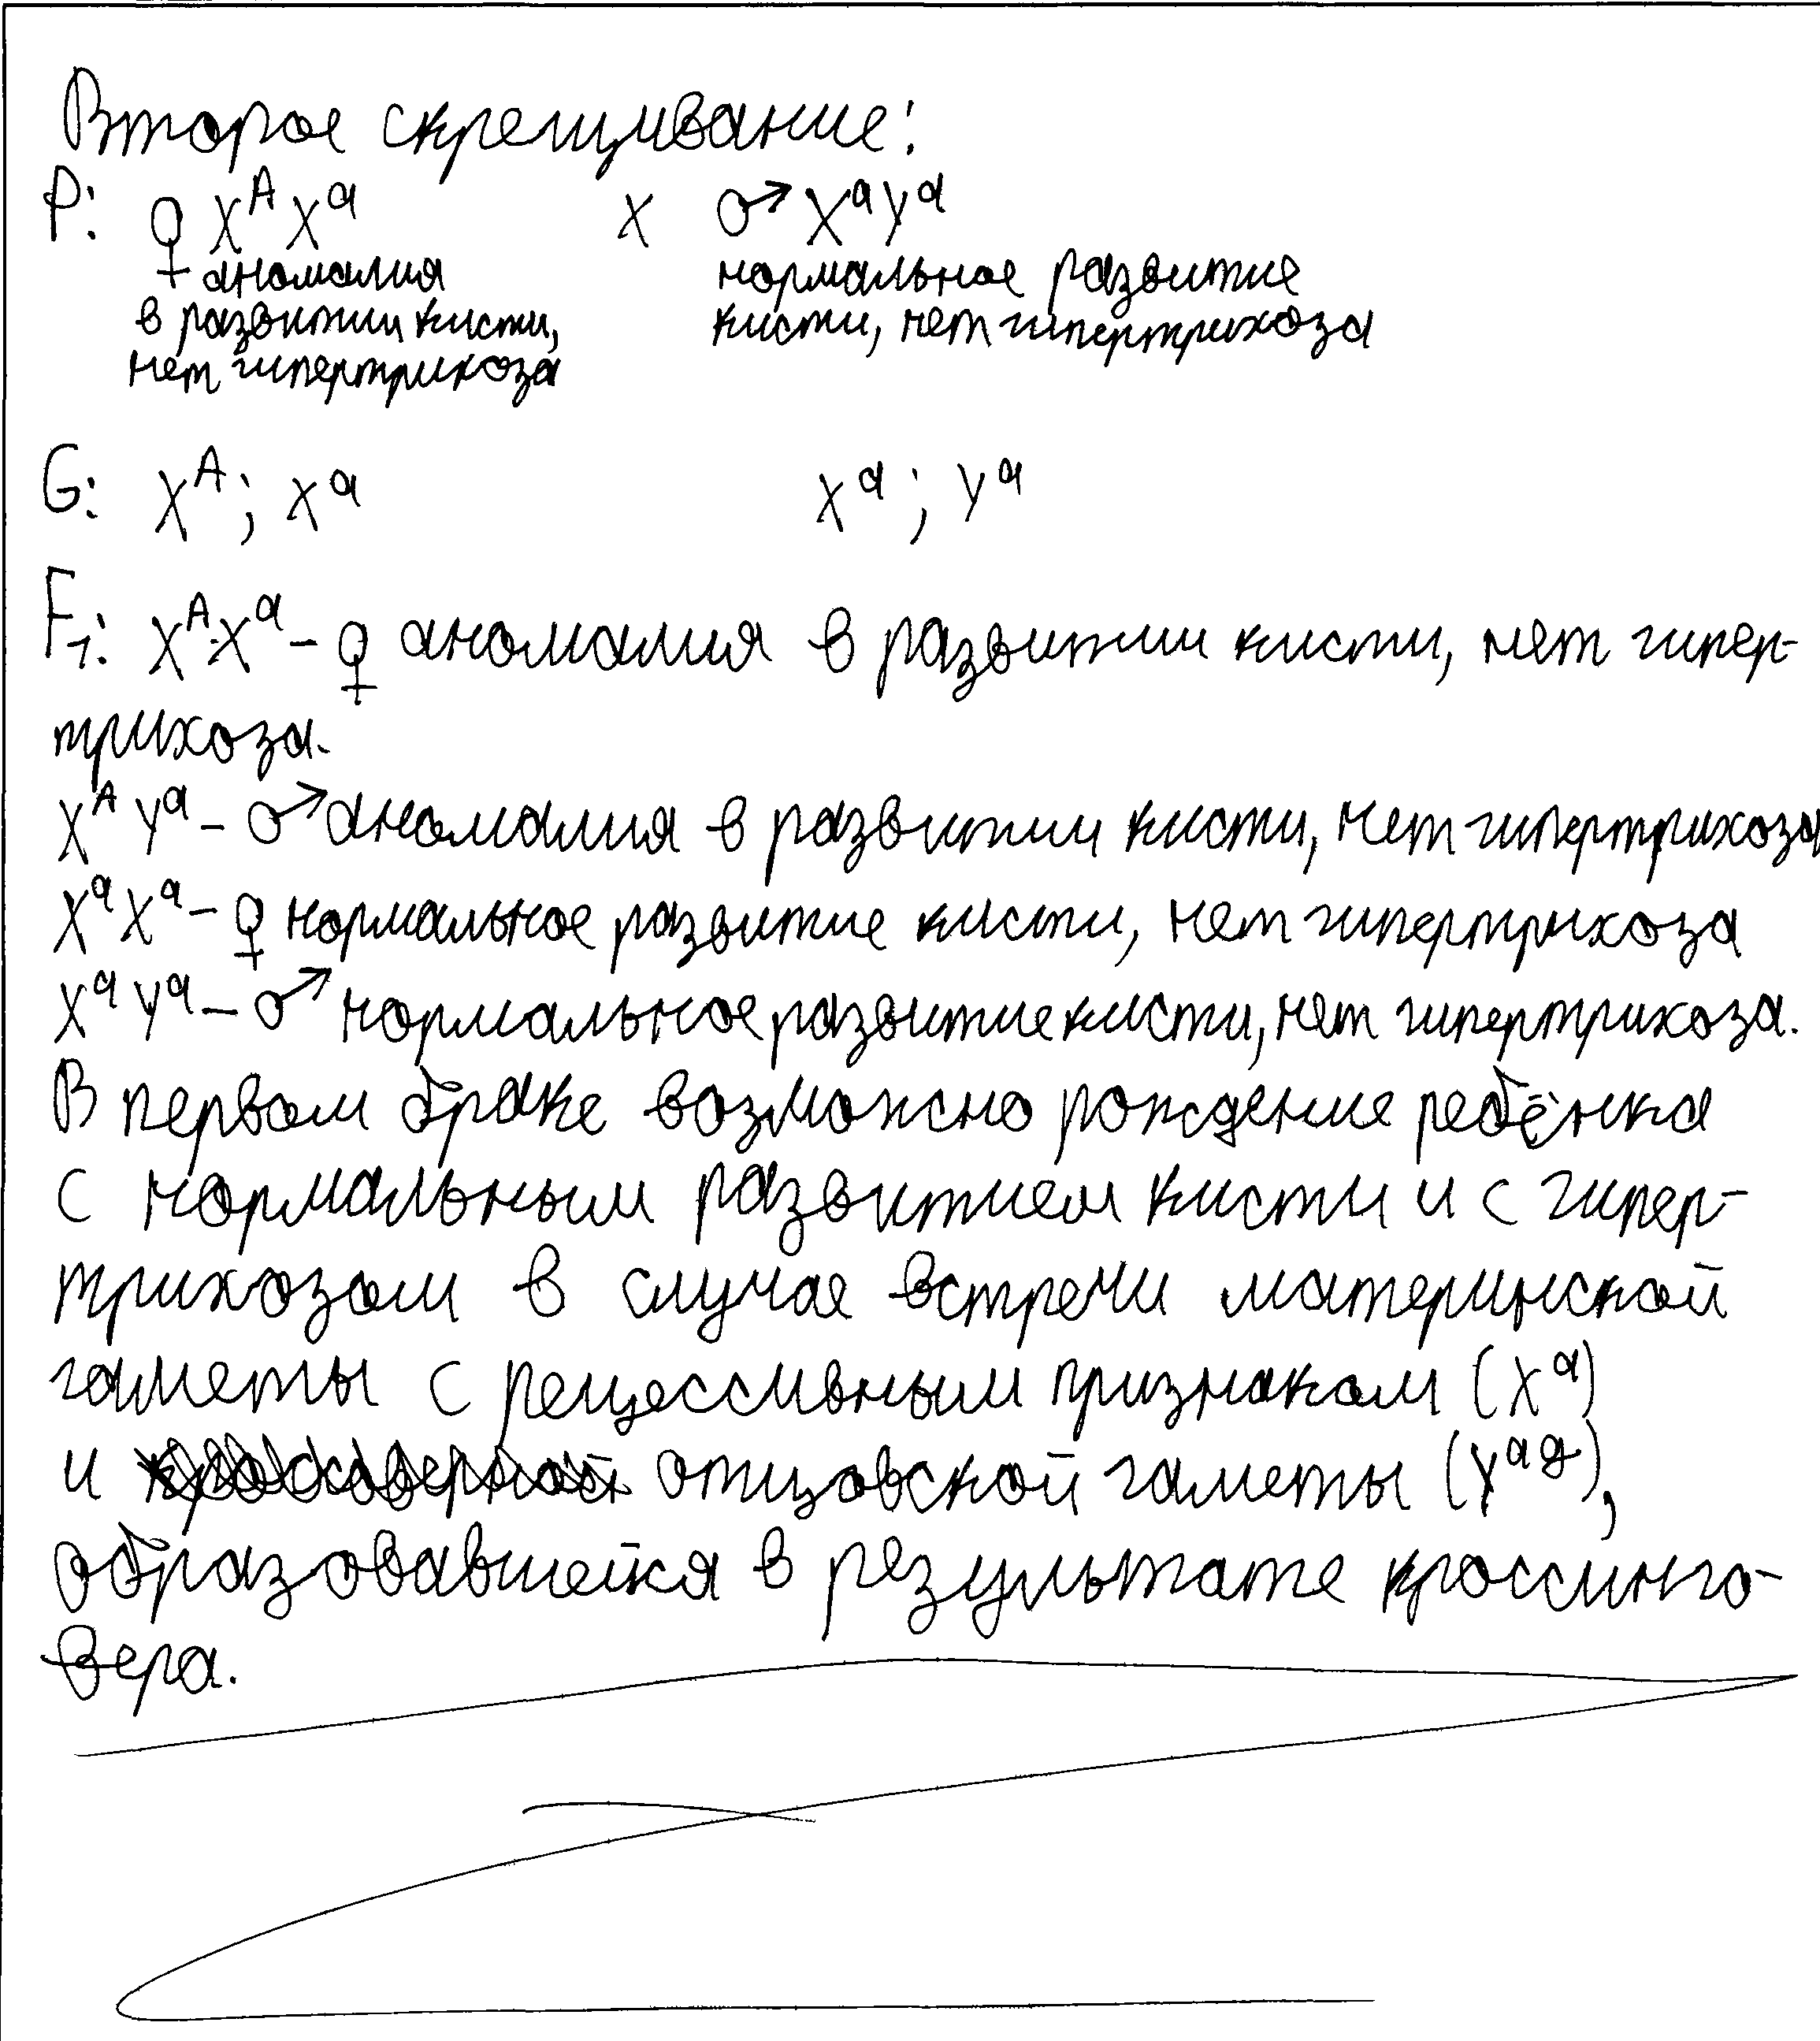 Второе скрещивание:
P: ♀ X^A X^a x ♂ X^a Y^a
аномалия нормальное развитие
в развитии кисти, кисти, нет гипертрихоза
нет гипертрихоза
G: X^A; X^a X^a; Y^a
F₁: X^A X^a - ♀ аномалия в развитии кисти, нет гипер-
трихоза.
X^A Y^a - ♂ аномалия в развитии кисти, нет гипертрихоза
X^a X^a - ♀ нормальное развитие кисти, нет гипертрихоза
X^a Y^a - ♂ нормальное развитие кисти, нет гипертрихоза.
В первом браке возможно рождение ребёнка
с нормальным развитием кисти и с гипер-
трихозом в случае встречи материнской
гаметы с рецессивным признаком (X^a)
и отцовской гаметы (Y^ag),
образовавшейся в результате кроссинго-
вера.